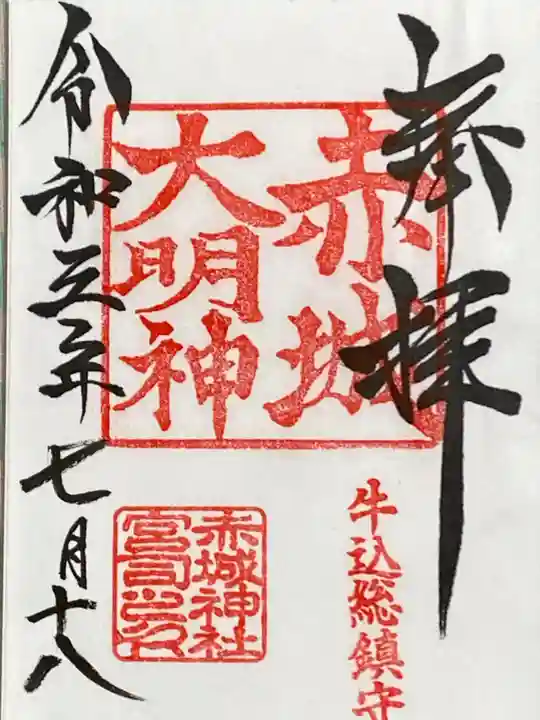 奉拝
赤城
大明神
牛込総鎮守
赤城神社
宮司之印
令和三年七月十八